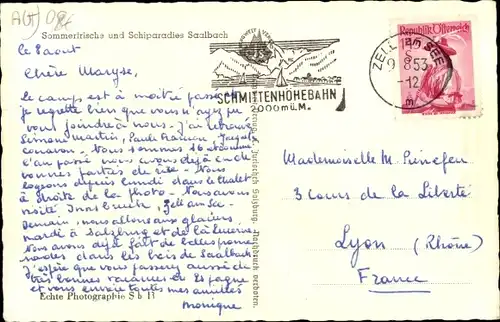 AUT 08
8€
Sommerfrische und Schiparadies Saalbach
le 8 aout
Chère Maryse,
Le camp est à moitié passé et
je regrette bien que vous n'ayez pu
vous joindre à nous. J'ai retrouvé
Simone Martin, Paule
Nous sommes 16
l'an passé nous avons déjà
bonnes parties de rire. Nous
logeons depuis lundi dans le chalet
à droite de la photo. Nous avons
visité Innsbruck, Zell am See
demain, nous allons aux glaciers
mardi à Salzburg et de là
Nous avons déjà fait de belles prome
nades dans les bois de Saalbach
J'espère que vous passerez aussi de
très bonnes vacances en Espagne
et vous envoie toutes mes amitiés
Monique
Echte Photographie S b 11
Salzburg. Nachdruck verboten.
SCHMITTENHÖHEBAHN
2000 m ü. M.
ZELL AM SEE
9 8 53
-12
Republik Österreich
Mademoiselle M.
3 cours de la Liberté
Lyon (Rhône)
France